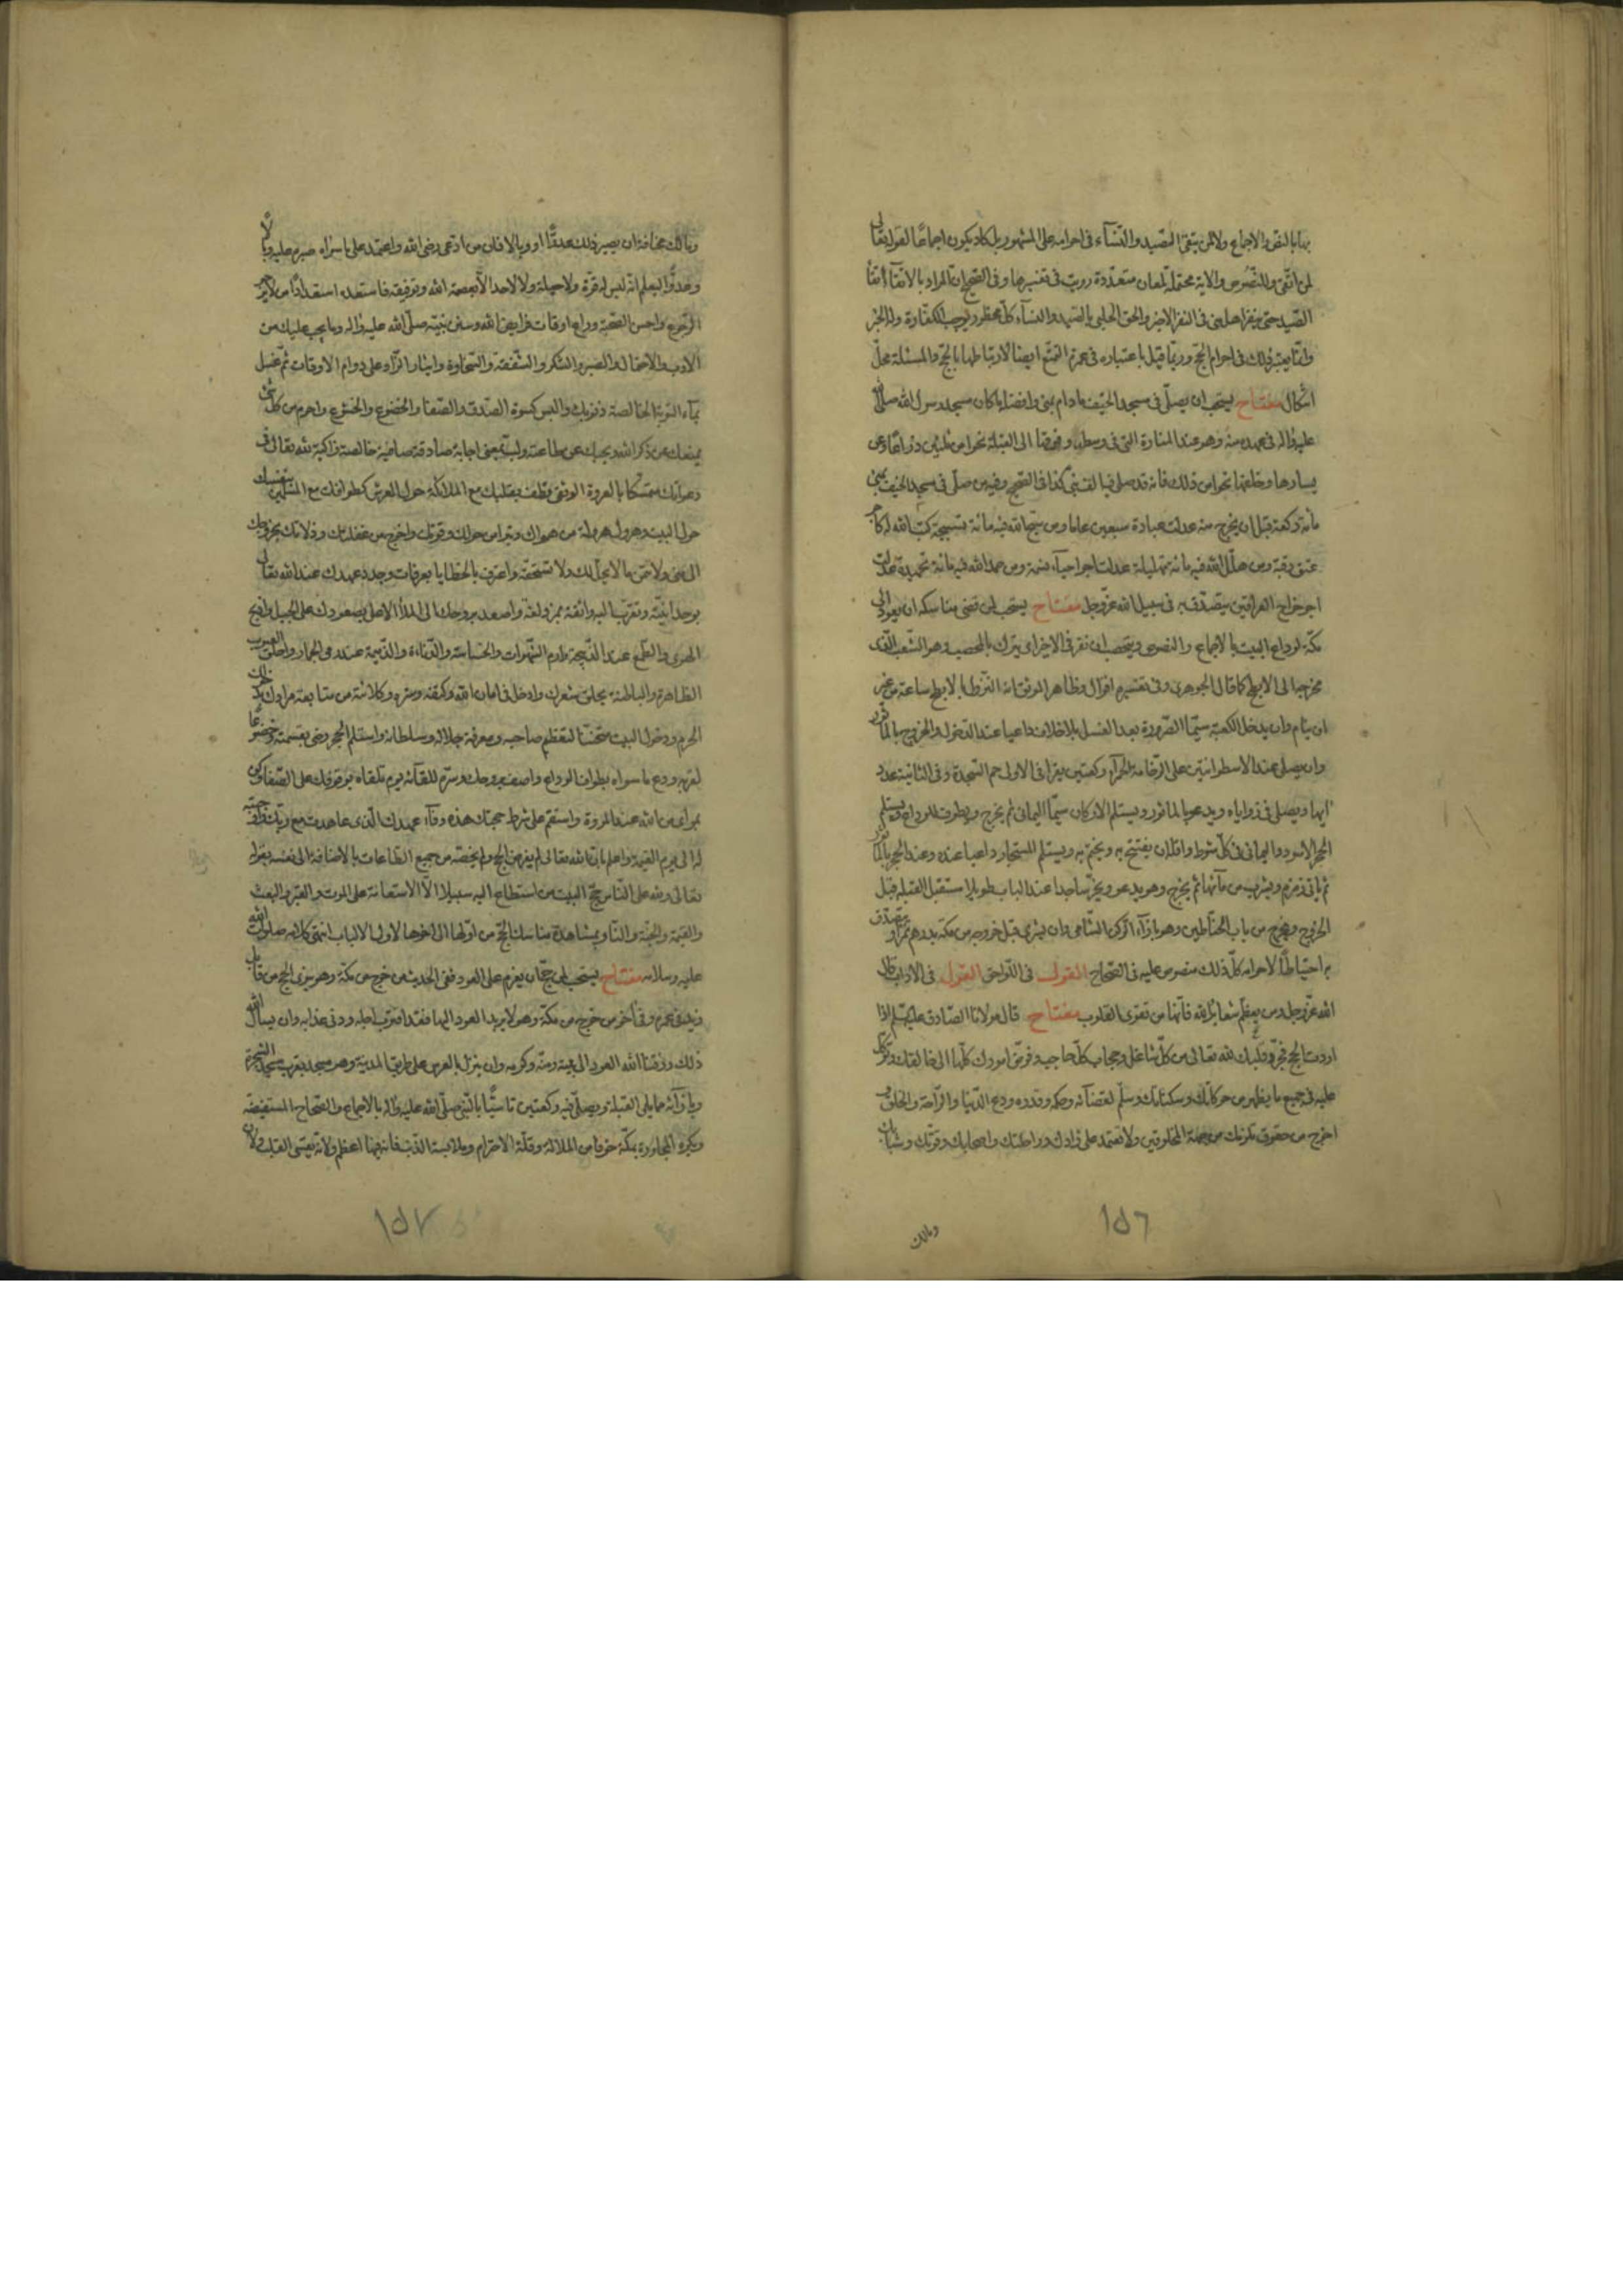 بها بالنص والاجماع ولا لمن يتقى الصيد والنسآء فى احرامه على المشهور بل كاد يكون اجماعًا لقوله تعالى
لمن اتقى وللنصوص والاية محتملة لمعان متعددة رويت فى تفسيرها وفى الصحيح ان المراد بالاتقآء اتقآ
الصيد حتى ينفر اهل منى فى النفر الاخير والحق الحلبى بالصيد والنسآء كل محظور يوجب الكفارة وله الخبر
وانما يعتبر ذلك فى احرام الحج وربما قيل باعتباره فى عمرة التمتع ايضا لارتباطها بالحج والمسئلة محل
اشكال مفتاح يستحب ان يصلى فى مسجد الخيف مادام بمنى وافضله ما كان مسجد رسول الله صلى الله
عليه واله فى عهده منه وهو عند المنارة التى فى وسطه وفوقها الى القبلة نحوا من ثلثين ذراعًا وعن
يسارها وخلفها نحوا من ذلك فانه قد صلى فيه الف نبى كذا فى الصحيح وفيه من صلى فى مسجد الخيف بمنى
مأة ركعة قبل ان يخرج منه عدلت عبادة سبعين عاما ومن سبح الله فيه مائة تسبيحة كتب الله له كاجر
عتق رقبة ومن هلل الله فيه مائة تهليلة عدلت اجر احيآء نسمة ومن حمد الله فيه مائة تحميدة عدلت
اجر خراج العراقين يتصدق به فى سبيل الله عز وجل مفتاح يستحب لمن قضى مناسكه ان يعود الى
مكة لوداع البيت بالاجماع والنصوص ويستحب لمن نفر فى الاخير ان ينزل بالمحصب وهو الشعب الذى
مخرجه الى الابطح كما قال الجوهرى وفى تفسيره اقوال وظاهر الموثق انه النزول بالابطح ساعة من غير
ان ينام وان يدخل الكعبة سيما الصرورة بعد الغسل بلا خلاف داعيا عند الدخول والخروج بالماثور
وان يصلى عند الاسطوانتين على الرخامة الحمرآء ركعتين يقرا فى الاولى حم السجدة وفى الثانية عدد
ايها ويصلى فى زواياه ويدعو بالماثور ويستلم الاركان سيما اليمانى ثم يخرج ويطوف للوداع ويستلم
الحجر الاسود واليمانى فى كل شوط واقله ان يفتتح به ويختم به ويستلم المستجار داعيا عنده وعند الحجر بالماثور
ثم ياتى زمزم ويشرب من مآئها ثم يخرج وهو يدعو ويخر ساجدا عند الباب طويلا مستقبل القبلة قبل
الخروج ويخرج من باب الحناطين وهو بازآء الركن الشامى وان يشترى قبل خروجه من مكة بدرهم تمرا ويتصدق
به احتياطًا لاحرامه كل ذلك منصوص عليه فى الصحاح القول فى اللواحق القول فى الاداب قال
الله عز وجل ومن يعظم شعائر الله فانها من تقوى القلوب مفتاح قال مولانا الصادق عليه السلم اذا
اردت الحج فجرد قلبك لله تعالى من كل شاغل وحجاب كل حاجب وفوض امورك كلها الى خالقك وتوكل
عليه فى جميع ما يظهر من حركاتك وسكناتك وسلم لقضآئه وحكمه وقدره ودع الدنيا والراحة والخلق و
اخرج من حقوق تلزمك من جهة المخلوقين ولا تعتمد على زادك وراحلتك واصحابك وقوتك وشبابك
ومالك
١٥٦
ومالك مخافة ان يصير ذلك عدوًّا ووبالا فان من ادعى رضى الله واعتمد على ما سواه صيره عليه وبالًا
وعدوًّا ليعلم انه ليس له قوة ولا حيلة ولا لاحد الا بعصمة الله وتوفيقه فاستعد استعداد من لا يرجو
الرجوع واحسن الصحبة وراع اوقات فرايض الله وسنن نبيه صلى الله عليه واله وما يجب عليك من
الادب والاحتمال والصبر والشكر والشفقة والسخاوة وايثار الزاد على دوام الاوقات ثم غسل
بمآء التوبة الخالصة ذنوبك والبس كسوة الصدق والصفا والخضوع والخشوع واحرم من كل شئ
يمنعك عن ذكر الله ويحجبك عن طاعته ولب بمعنى اجابة صادقة صافية خالصة زاكية لله تعالى فى
دعوتك متمسكا بالعروة الوثقى وطف بقلبك مع الملائكة حول العرش كطوافك مع المسلمين بنفسك
حول البيت وهرول هرولة من هواك وتبرأ من حولك وقوتك واخرج من غفلتك وزلاتك بخروجك
الى منى ولا تمن ما لا يحل لك ولا تستحقه واعترف بالخطايا بعرفات وجدد عهدك عند الله تعالى
بوحدانيته وتقرب اليه واتقه بمزدلفة واصعد بروحك الى الملأ الاعلى بصعودك على الجبل واذبح
الهوى والطمع عند الذبيحة وارم الشهوات والخساسة والدناءة والذميمة عند رمى الجمار واحلق العيوب
الظاهرة والباطنة بحلق شعرك وادخل فى امان الله وكنفه وستره وكلائته من متابعة مرادك بدخولك
الحرم ودخول البيت متحققا لتعظيم صاحبه ومعرفة جلاله وسلطانه واستلم الحجر رضى بقسمته وخضوعًا
لعزته وودع ما سواه بطواف الوداع واصف روحك وسرك للقآئه يوم تلقاه بوقوفك على الصفا وكن
بمرأى من الله عند المروة واستقم على شرط حجتك هذه ووفآء عهدك الذى عاهدت مع ربك واوجبته
له الى يوم القيمة واعلم بان الله تعالى لم يفرض الحج ولم يخصه من جميع الطاعات بالاضافة الى نفسه بقوله
تعالى ولله على الناس حج البيت من استطاع اليه سبيلا الا للاستعانة على الموت والقبر والبعث
والقيمة والجنة والنار بمشاهدة مناسك الحج من اولها الى اخرها لاولى الالباب انتهى كلامه صلوات الله
عليه وسلامه مفتاح يستحب لمن حج ان يعزم على العود ففى الحديث من خرج من مكة وهو ينوى الحج من قابل
زيد فى عمره وفى آخر من خرج من مكة وهو لا يريد العود اليها فقد اقترب اجله ودنى عذابه وان يسأل الله
ذلك ورزقنا الله العود الى بيته ومنه وكرمه وان ينزل بالمعرس على طريق المدينة وهو مسجد بقرب مسجد الشجرة
وبازآئه مما يلى القبلة ويصلى فيه ركعتين تاسيًّا بالنبى صلى الله عليه واله بالاجماع والصحاح المستفيضة
ويكره المجاورة بمكة خوفا من الملالة وقلة الاحترام وملابسة الذنب فانه فيها اعظم ولانه يقسى القلب ولان
١٥٧